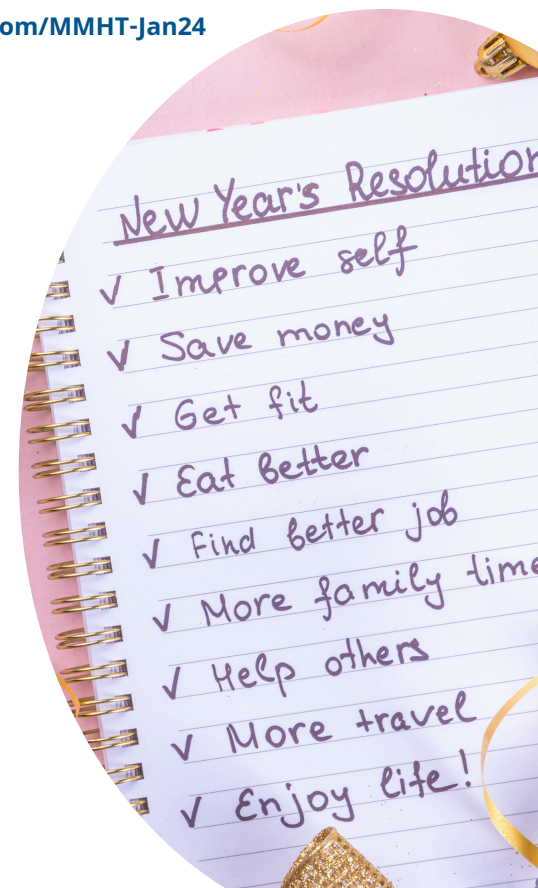 om/MMHT-Jan24
New Year's Resolution
✓ Improve self
✓ Save money
✓ Get fit
✓ Eat better
✓ Find better job
✓ More family time
✓ Help others
✓ More travel
✓ Enjoy life!